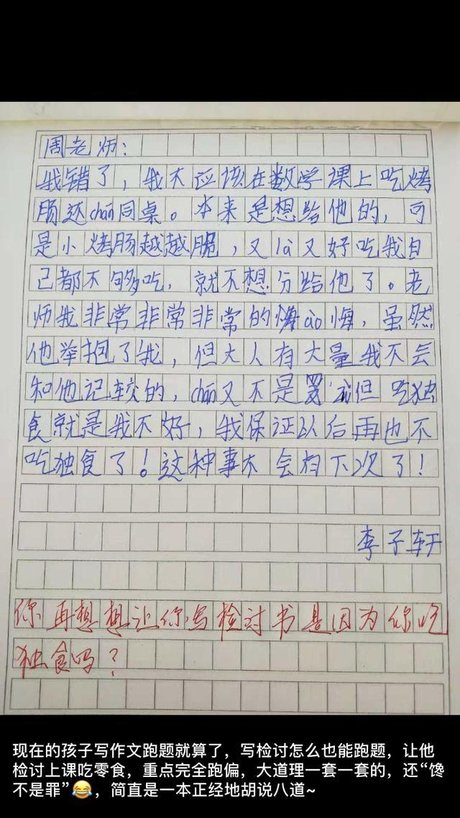 周老师:
我错了,我不应该在数学课上吃烤
肠还chan同桌。本来是想给他的,可
是小烤肠越越脆,又là又好吃我自
己都不够吃,就不想分给他了。老
师我非常非常非常的ào悔,虽然
他举抱了我,但大人有大量我不会
和他记较的,chán又不是罪但吃独
食就是我不好,我保证以后再也不
吃独食了!这种事不会有下次了!
李子轩
你再想想让你写检讨书是因为你吃
独食吗?
现在的孩子写作文跑题就算了,写检讨怎么也能跑题,让他
检讨上课吃零食,重点完全跑偏,大道理一套一套的,还“馋
不是罪”😂,简直是一本正经地胡说八道~